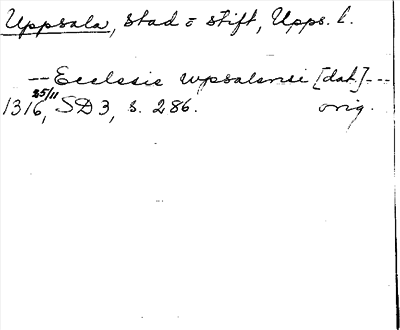 Uppsala, stad o stift, Upps. l.
-- Ecclesie wpsalensi [dat.] ---
1316 25/11, SD 3, s. 286. orig.